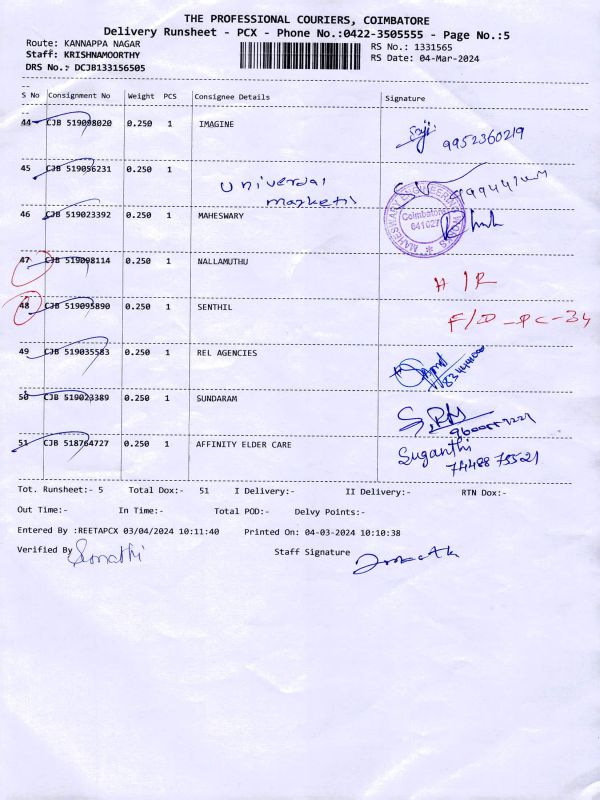 THE PROFESSIONAL COURIERS, COIMBATORE
Delivery Runsheet - PCX - Phone No.:0422-3505555 - Page No.:5
Route: KANNAPPA NAGAR
RS No.: 1331565
Staff: KRISHNAMOORTHY
RS Date: 04-Mar-2024
DRS No.: DCJB133156505
S No Consignment No Weight PCS Consignee Details Signature
44 CJB 519098020 0.250 1 IMAGINE
9952360219
45 CJB 519056231 0.250 1
Universal
46 CJB 519023392 0.250 1 MAHESWARY
MAHESWARY ENGINEERING WORKS
Coimbatore
641027
47 CJB 519098114 0.250 1 NALLAMUTHU
H/R
48 CJB 519095890 0.250 1 SENTHIL
F/D-PC-34
49 CJB 519035583 0.250 1 REL AGENCIES
50 CJB 519023389 0.250 1 SUNDARAM
51 CJB 518764727 0.250 1 AFFINITY ELDER CARE
Suganthi
74488 75521
Tot. Runsheet:- 5 Total Dox:- 51 I Delivery:- II Delivery:- RTN Dox:-
Out Time:- In Time:- Total POD:- Delvy Points:-
Entered By :REETAPCX 03/04/2024 10:11:40 Printed On: 04-03-2024 10:10:38
Verified By Staff Signature